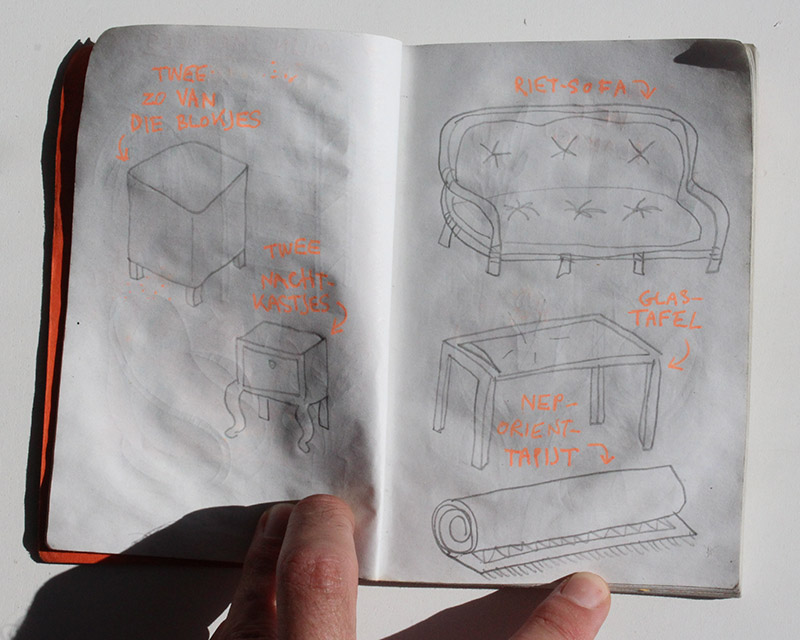 TWEE
ZO VAN
DIE BLOKJES
TWEE
NACHT-
KASTJES
RIET-SOFA
GLAS-
TAFEL
NEP-
ORIENT-
TAPIJT